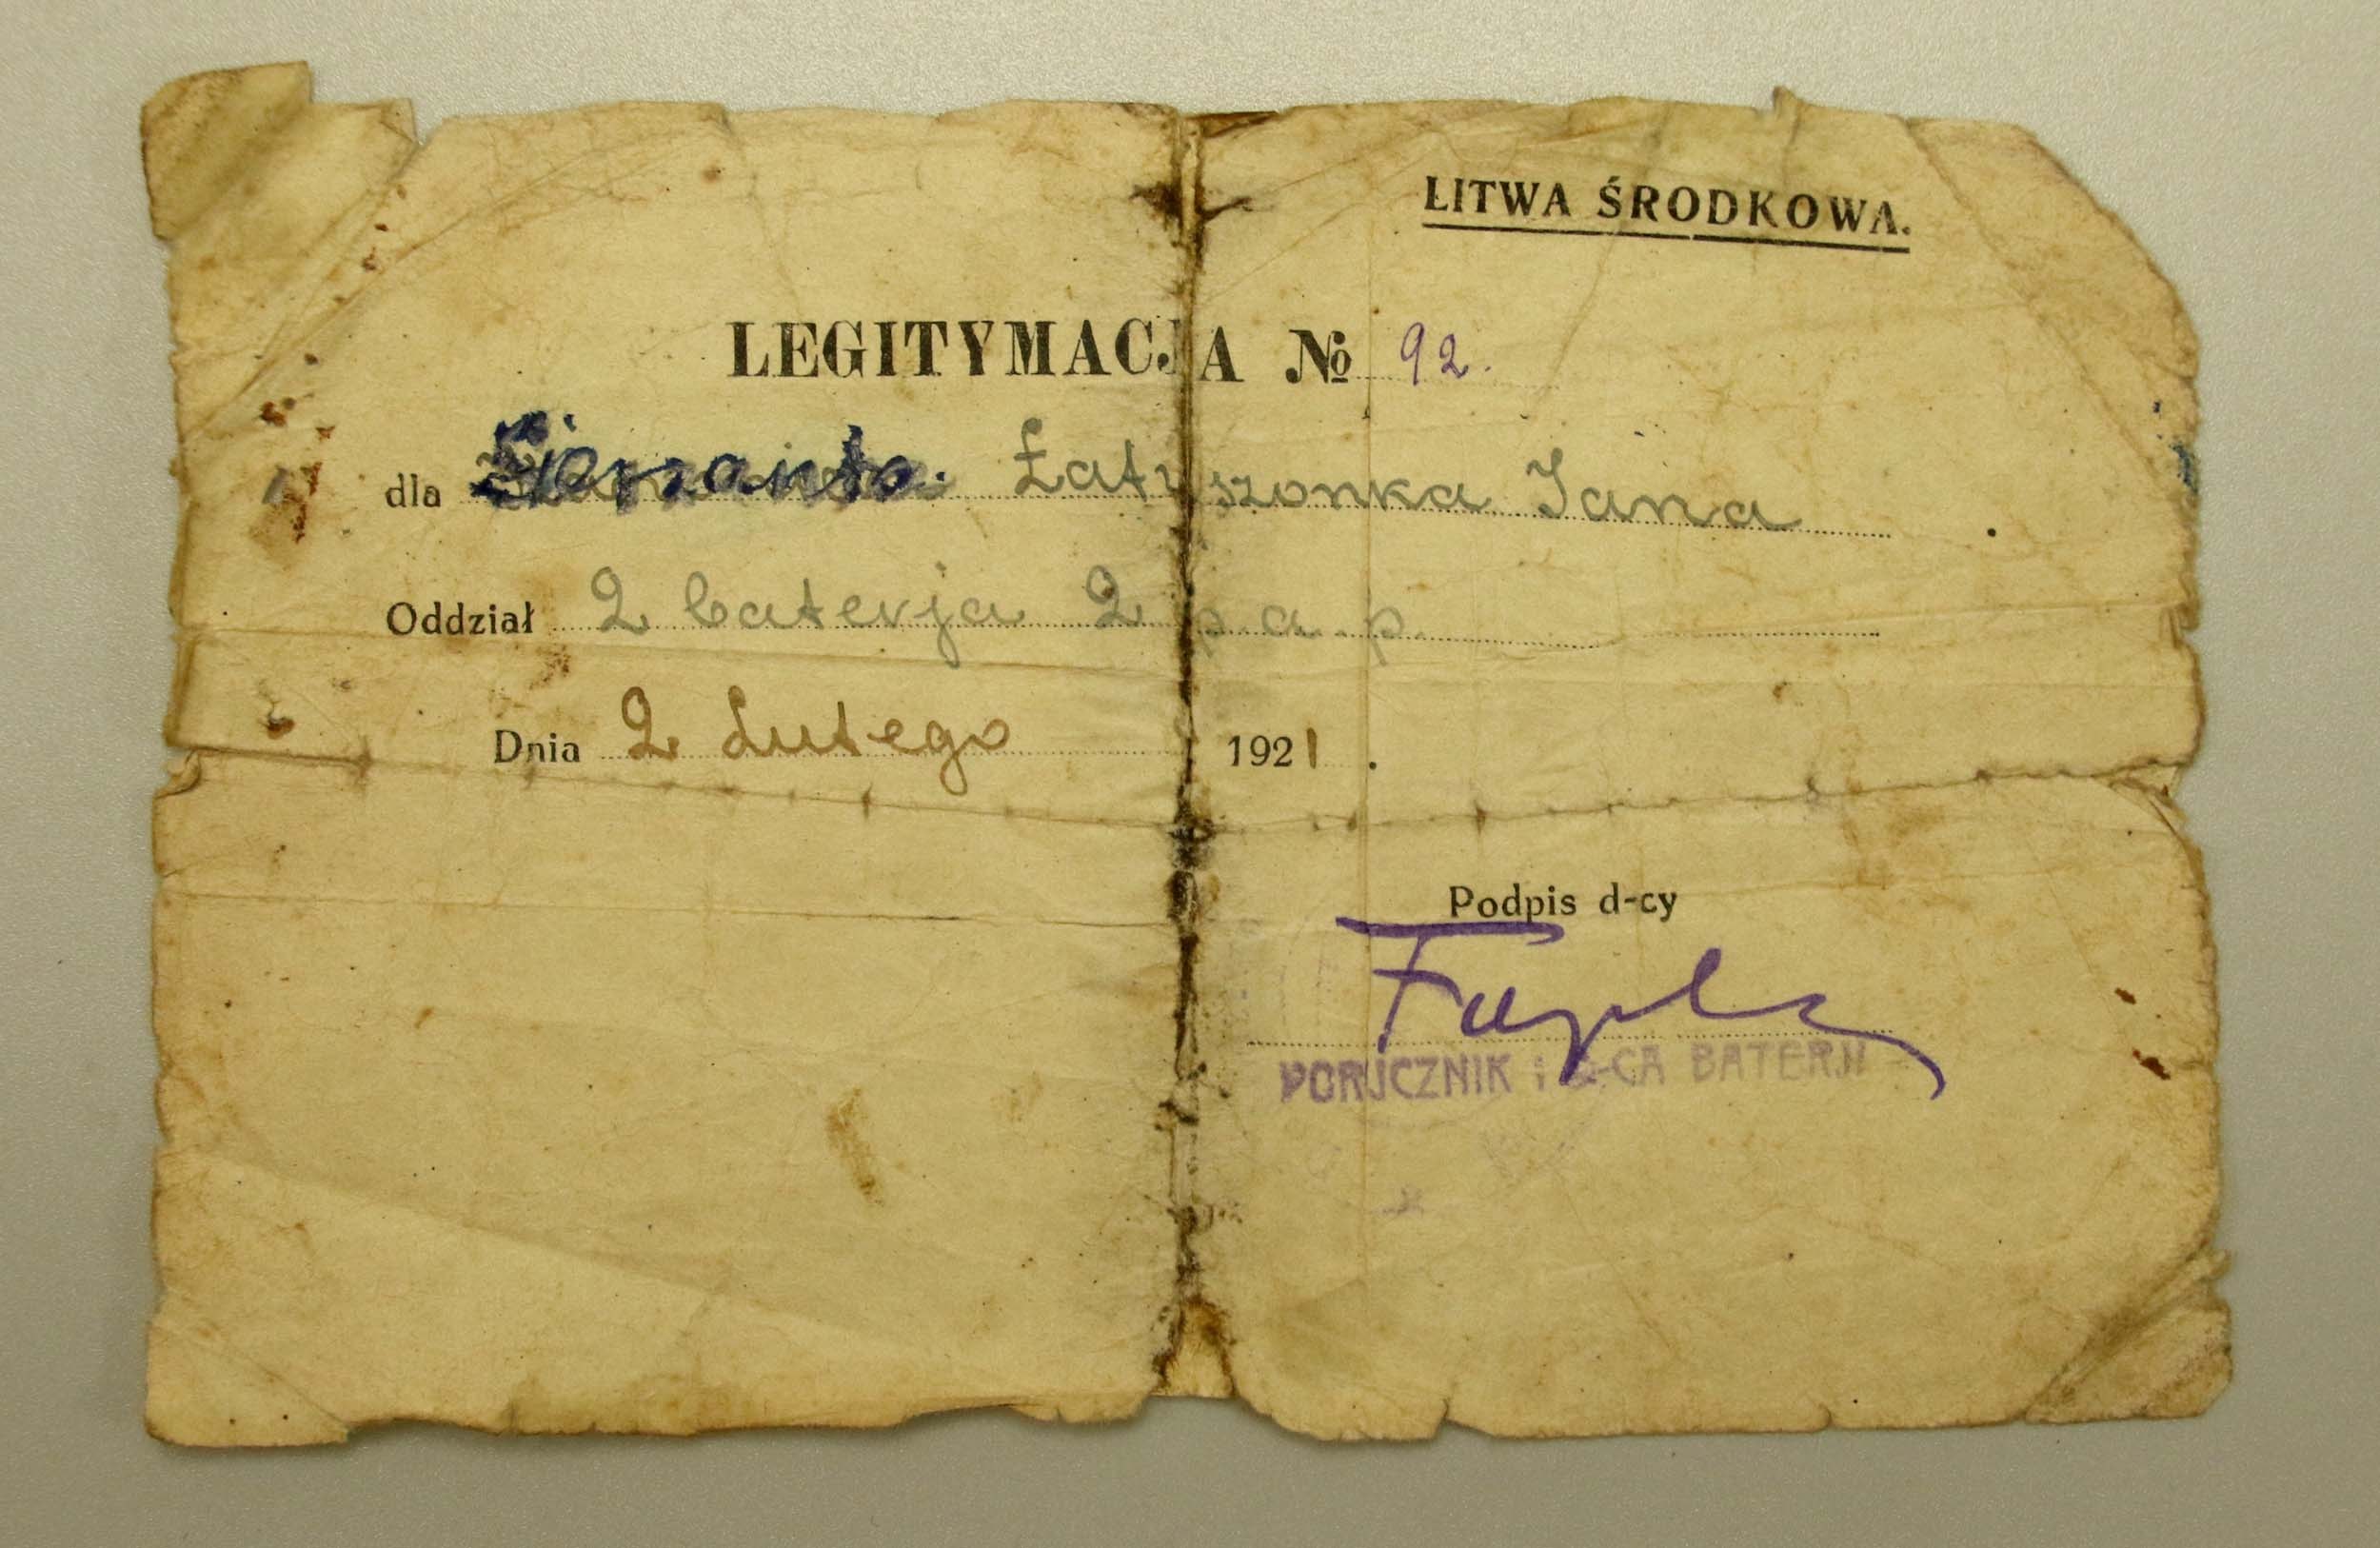 LITWA ŚRODKOWA.
LEGITYMACJA № 92.
dla Sierżanta. Łatyszonka Jana
Oddział 2 baterja 2 p. a. p.
Dnia 2 Lutego 1921.
Podpis d-cy
PORUCZNIK i D-CA BATERJI